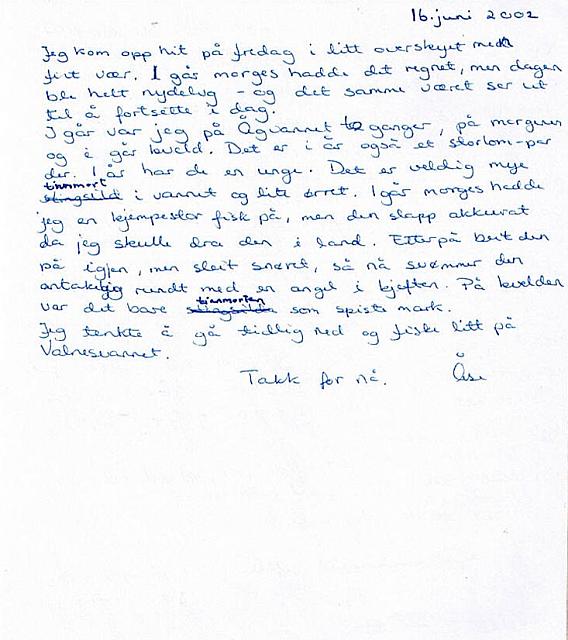 16. juni 2002
Jeg kom opp hit på fredag i litt overskyet men
fint vær. I går morges hadde det regnet, men dagen
ble helt nydelig - og det samme været ser ut
til å fortsette i dag.
I går var jeg på Ågvannet to ganger, på morgenen
og i går kveld. Det er i år også et storlom-par
der. I år har de en unge. Det er veldig mye
tinnmort
stingsild i vannet og lite ørret. I går morges hadde
jeg en kjempestor fisk på, men den slapp akkurat
da jeg skulle dra den i land. Etterpå beit den
på igjen, men sleit snøret, så nå svømmer den
antakelig rundt med en angel i kjeften. På kvelden
tinnmorten
var det bare stingsilda som spiste mark.
Jeg tenkte å gå tidlig ned og fiske litt på
Valnesvannet.
Takk for nå. Åse